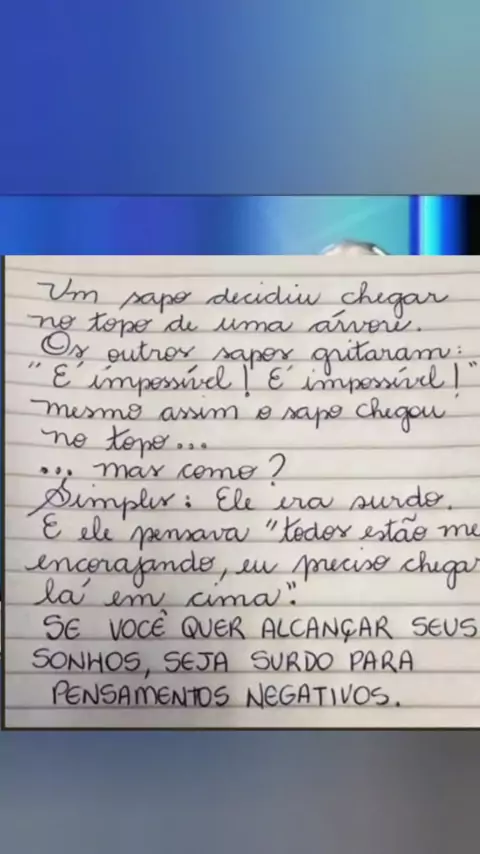 Um sapo decidiu chegar
no topo de uma árvore.
Os outros sapos gritaram:
"É impossível! É impossível!"
mesmo assim o sapo chegou
no topo...
... mas como?
Simples: Ele era surdo.
E ele pensava "todos estão me
encorajando, eu preciso chegar
lá em cima".
SE VOCÊ QUER ALCANÇAR SEUS
SONHOS, SEJA SURDO PARA
PENSAMENTOS NEGATIVOS.